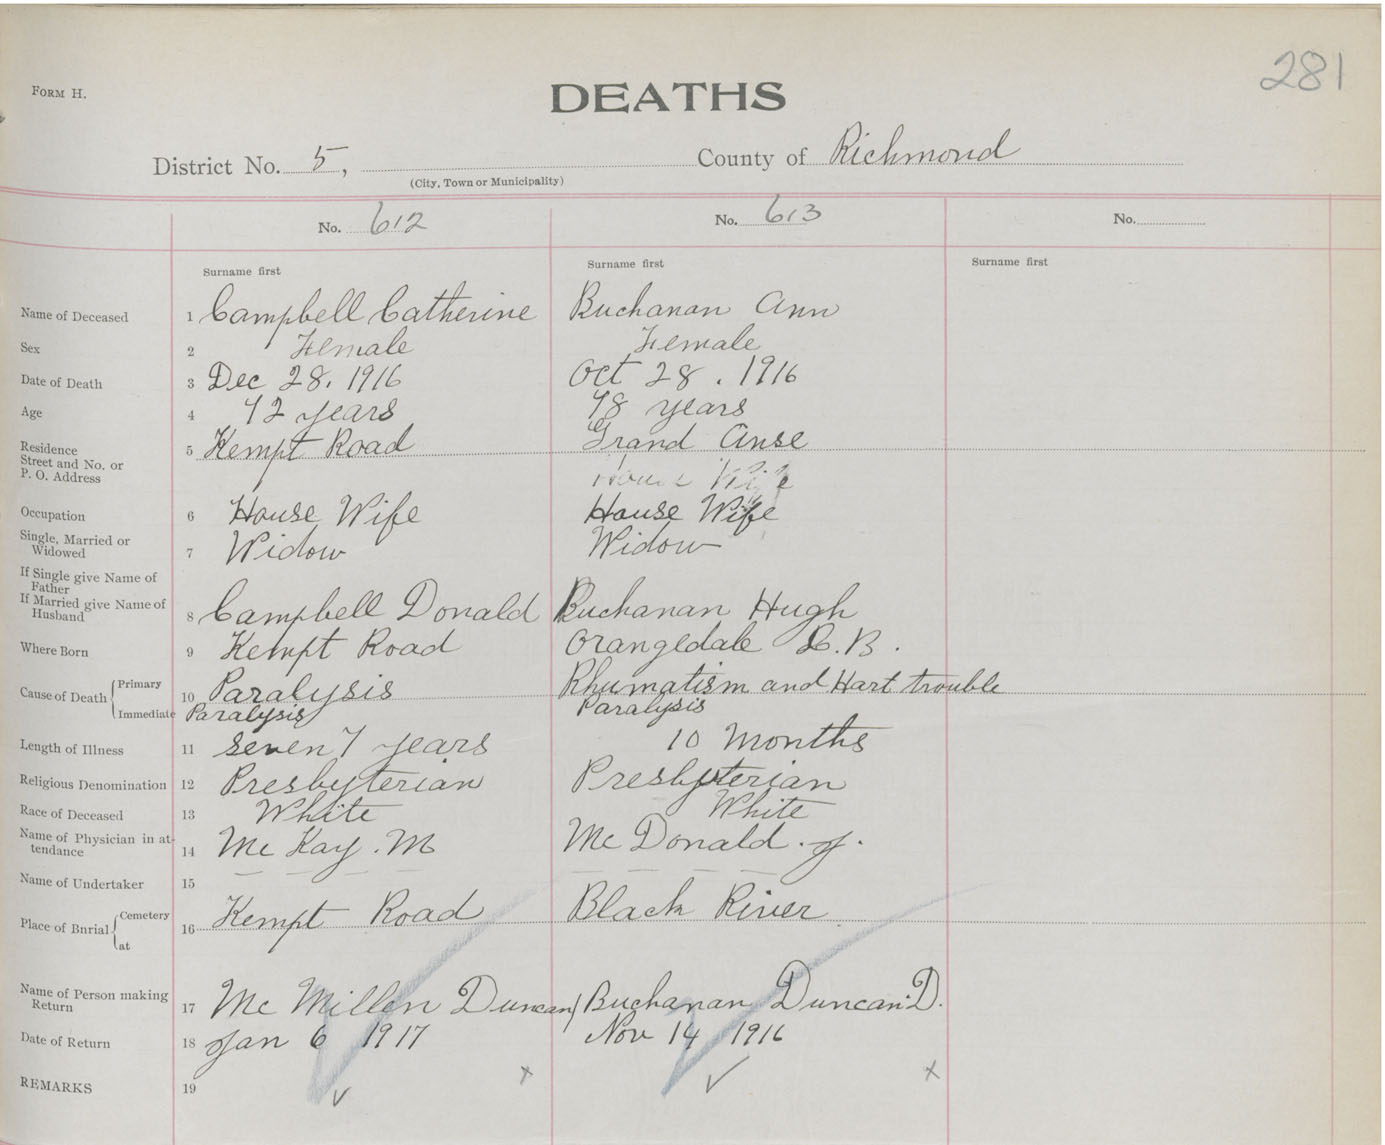 281
FORM H.
DEATHS
District No. 5, County of Richmond
(City, Town or Municipality)
No. 612 No. 613 No.
Surname first Surname first Surname first
Name of Deceased 1 Campbell Catherine Buchanan Ann
Sex 2 Female Female
Date of Death 3 Dec 28. 1916 Oct 28. 1916
Age 4 72 years 78 years
Residence
Street and No. or
P. O. Address 5 Kempt Road Grand Anse
House Wife
Occupation 6 House Wife House Wife
Single, Married or
Widowed 7 Widow Widow
If Single give Name of
Father
If Married give Name of
Husband 8 Campbell Donald Buchanan Hugh
Where Born 9 Kempt Road Orangedale C.B.
Cause of Death Primary 10 Paralysis Rhumatism and Hart trouble
Immediate Paralysis Paralysis
Length of Illness 11 seven 7 years 10 Months
Religious Denomination 12 Presbyterian Presbyterian
Race of Deceased 13 White White
Name of Physician in at-
tendance 14 Mc Kay. M Mc Donald. J.
Name of Undertaker 15
Place of Bnrial Cemetery 16 Kempt Road Black River
at
Name of Person making
Return 17 Mc Millen Duncan Buchanan Duncan D.
Date of Return 18 Jan 6 1917 Nov 14 1916
REMARKS 19